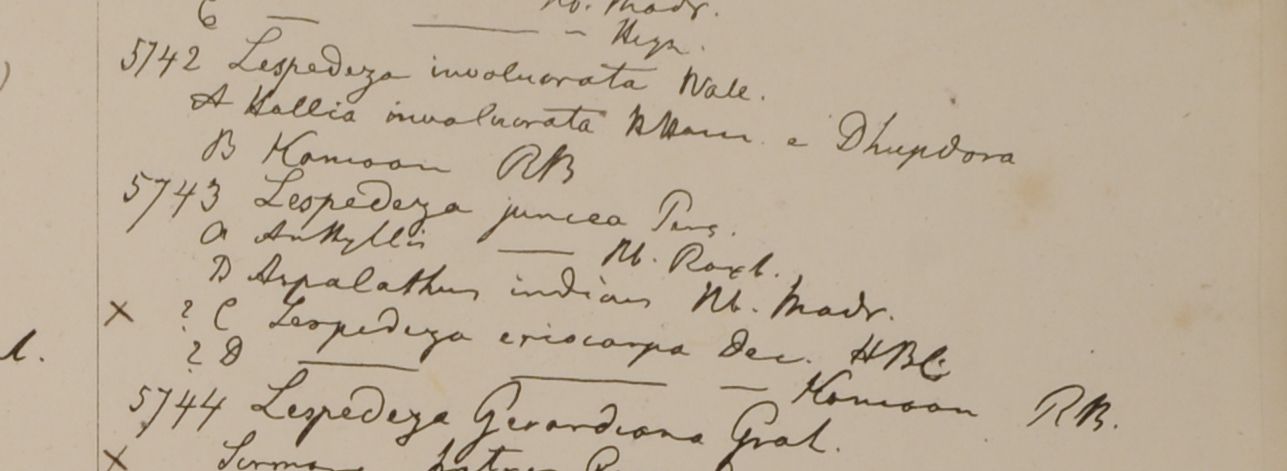 C — — - Hb. Madr.
- Heyn.
5742 Lespedeza involucrata Wall.
A Hallia involucrata HHam. e Dhupdora
B Kamoon RB
5743 Lespedeza juncea Pers.
a Anthyllis — Hb. Roxb.
B Aspalathus indicus Hb. Madr.
x ? C Lespedeza eriocarpa Dec. HBC
l.
? D — — — Kamoon RB.
5744 Lespedeza Gerardiana Grah.
x